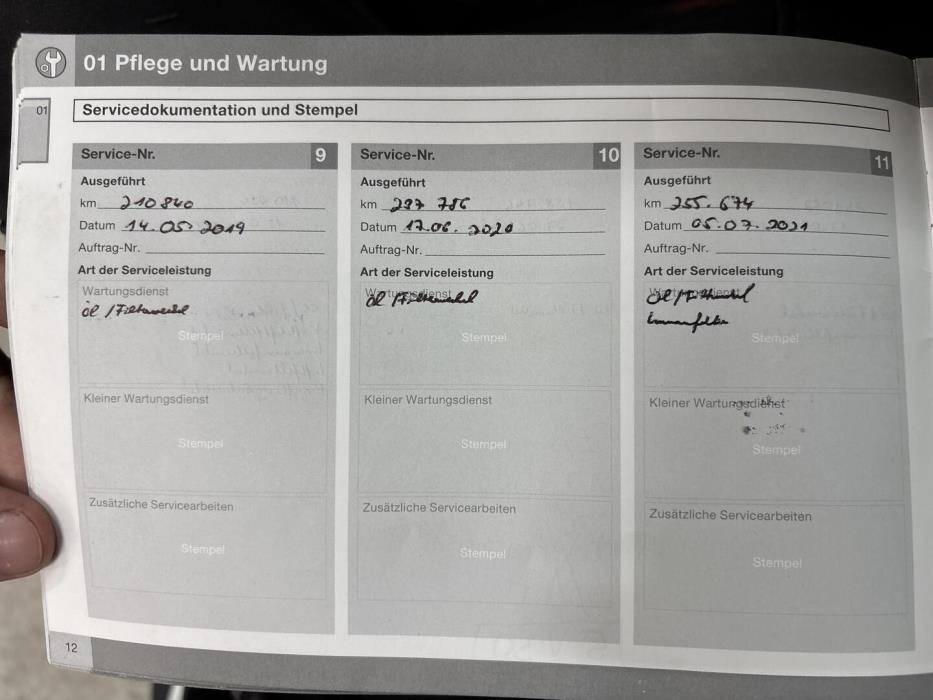 01 Pflege und Wartung
01
Servicedokumentation und Stempel
Service-Nr. 9
Ausgeführt
km 210 840
Datum 14.05.2019
Auftrag-Nr.
Art der Serviceleistung
Wartungsdienst
öl / Filterwechsel
Stempel
Kleiner Wartungsdienst
Stempel
Zusätzliche Servicearbeiten
Stempel
Service-Nr. 10
Ausgeführt
km 237 786
Datum 17.06.2020
Auftrag-Nr.
Art der Serviceleistung
Wartungsdienst
öl / Filterwechsel
Stempel
Kleiner Wartungsdienst
Stempel
Zusätzliche Servicearbeiten
Stempel
Service-Nr. 11
Ausgeführt
km 255.674
Datum 05.07.2021
Auftrag-Nr.
Art der Serviceleistung
Wartungsdienst
Öl / Filterwechsel
Stempel
Kleiner Wartungsdienst
Stempel
Zusätzliche Servicearbeiten
Stempel
12